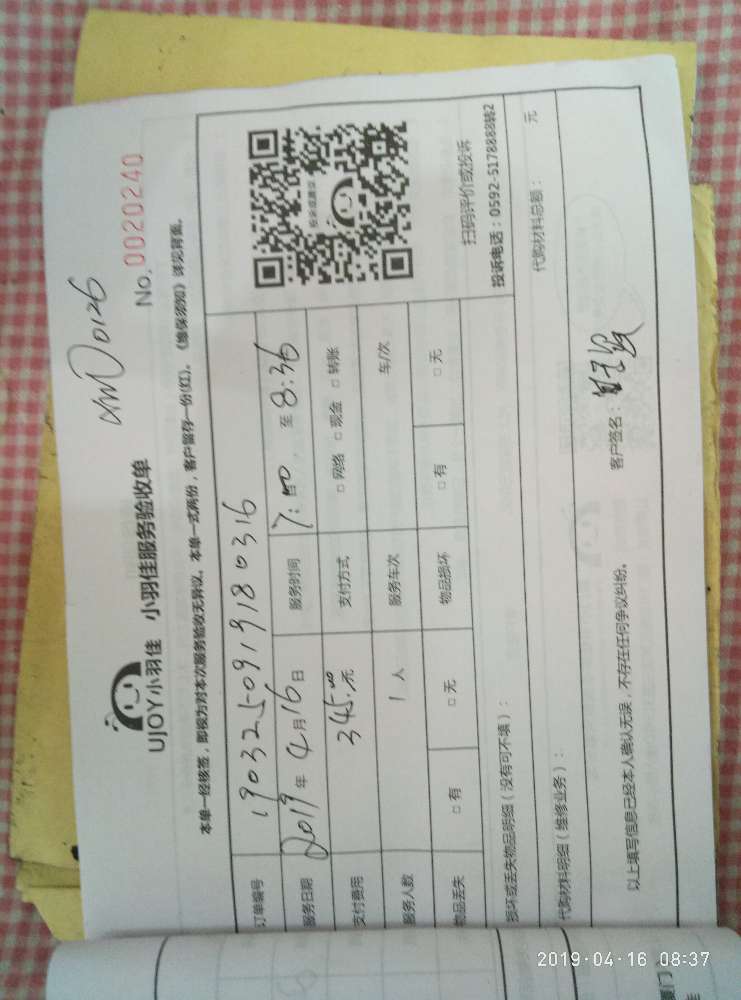 XMD0126
UJOY小羽佳 小羽佳服务验收单
No. 0020240
本单一经核签，即视为对本次服务验收无异议。本单一式两份，客户留存一份(红)。《维保须知》详见背面。
订单编号 190325091918 0316
服务日期 2019年4月16日 服务时间 7:00 至 8:36
支付费用 345.00元 支付方式 □网络 □现金 □转账
服务人数 1人 服务车次 车/次
物品丢失 □有 □无 物品损坏 □有 □无
投诉或建议
扫码评价或投诉
投诉电话：0592-5178888转2
损坏或丢失物品明细（没有可不填）：
代购材料明细（维修业务）： 代购材料总额： 元
以上填写信息已经本人确认无误，不存在任何争议纠纷。 客户签名：
2019-04-16 08:37